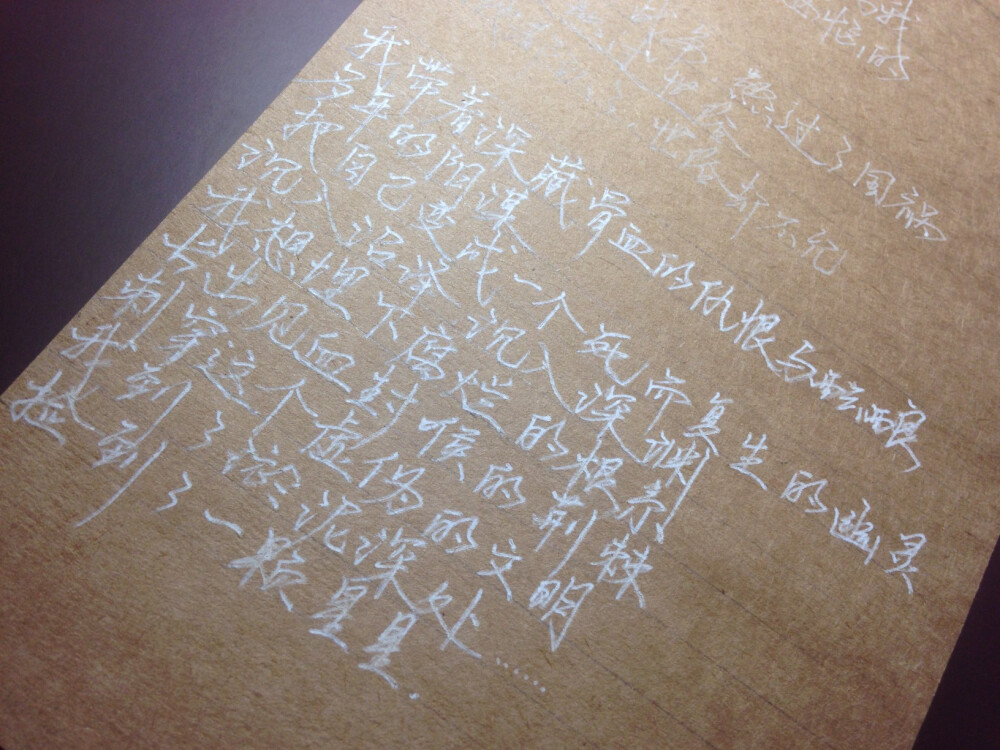 熬过了国祸
我带着深藏骨血的仇恨与酝酿
多年的阴谋
把自己变成一个死而复生的幽灵
沉入沼泽 沉入深渊
我想埋下腐烂的根系
长出见血封喉的荆棘
刺穿这个虚伪的文明
我到了淤泥深处……
捡到了一颗星星.